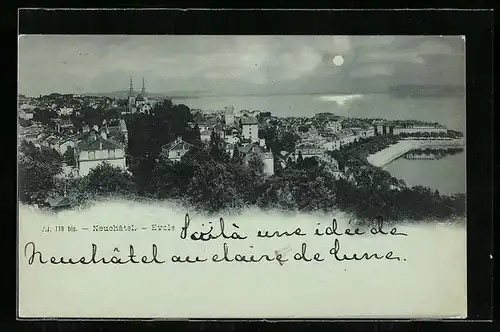 J.J. 719 bis. - Neuchâtel. - Evole
Voilà une idée de
Neuchâtel au claire de lune.